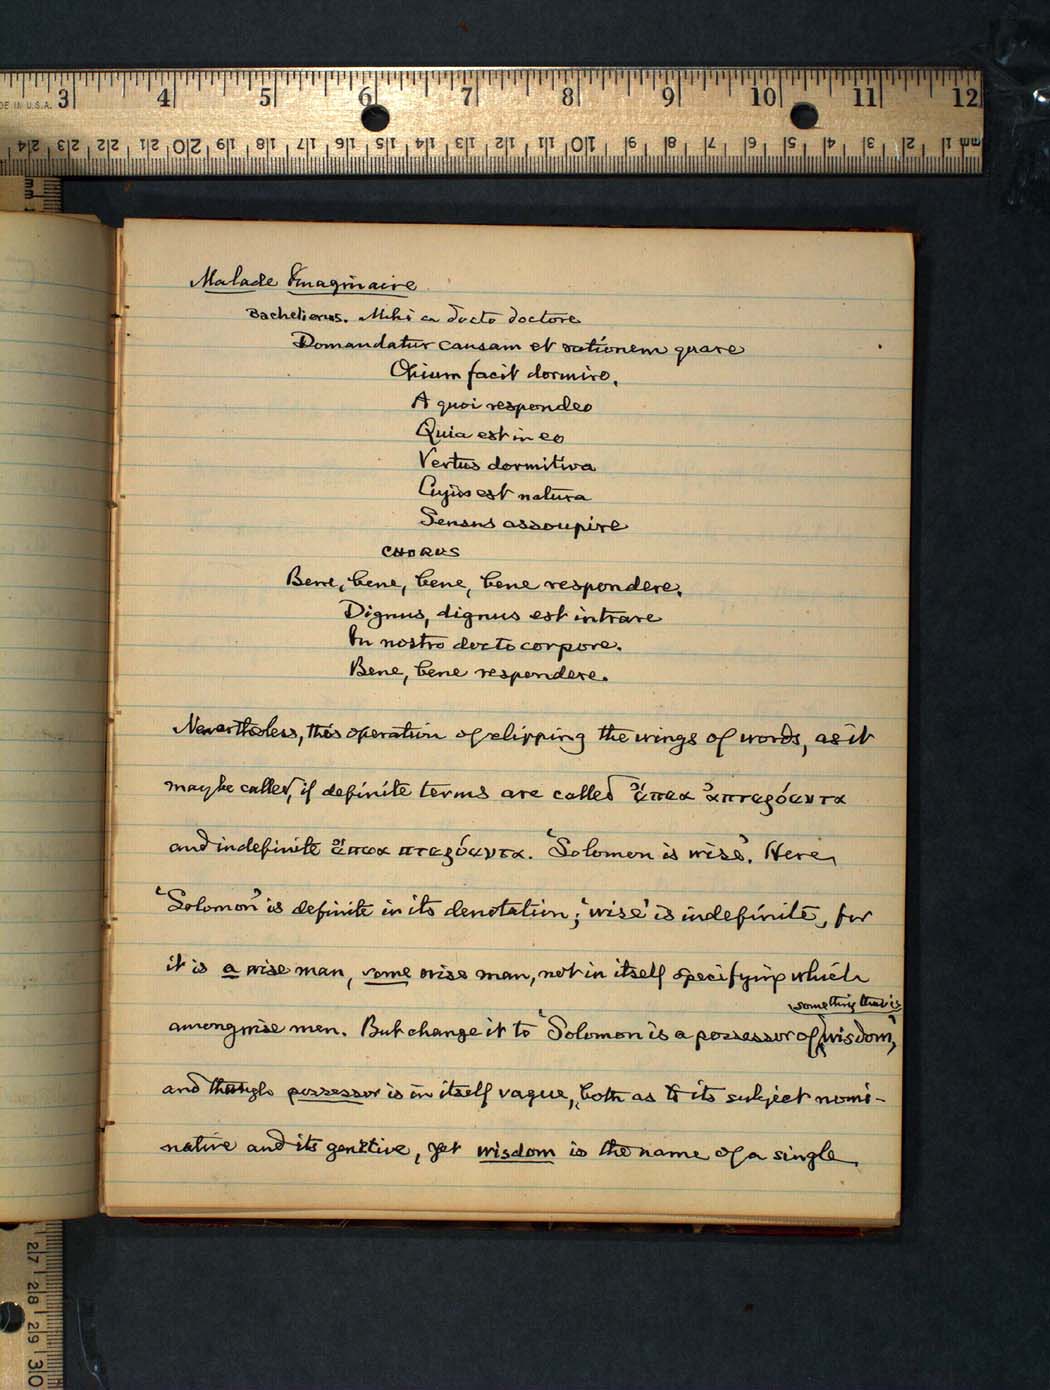 DE IN U.S.A. 3 4 5 6 7 8 9 10 11 12
24 23 22 21 20 19 18 17 16 15 14 13 12 11 10 9 8 7 6 5 4 3 2 1 mm
mm
Malade Imaginaire
Bachelierus. Mihi a docto doctore
Domandatur causam et rationem quare
Opium facit dormire.
A quoi respondeo
Quia est in eo
Vertus dormitiva
Cujus est natura
Sensus assoupire
CHORUS
Bene, bene, bene, bene respondere.
Dignus, dignus est intrare
In nostro docto corpore.
Bene, bene respondere.
Nevertheless, this operation of clipping the wings of words, as it
may be called, if definite terms are called ἔπεα ἀπτερόεντα
and indefinite ἔπεα πτερόεντα. 'Solomon is wise'. Here,
'Solomon' is definite in its denotation; 'wise' is indefinite, for
it is a wise man, some wise man, not in itself specifying which
something that is
among wise men. But change it to 'Solomon is a possessor of wisdom,'
and though possessor is in itself vague, both as to its subject nomi-
native and its genitive, yet wisdom is the name of a single
27 28 29 30